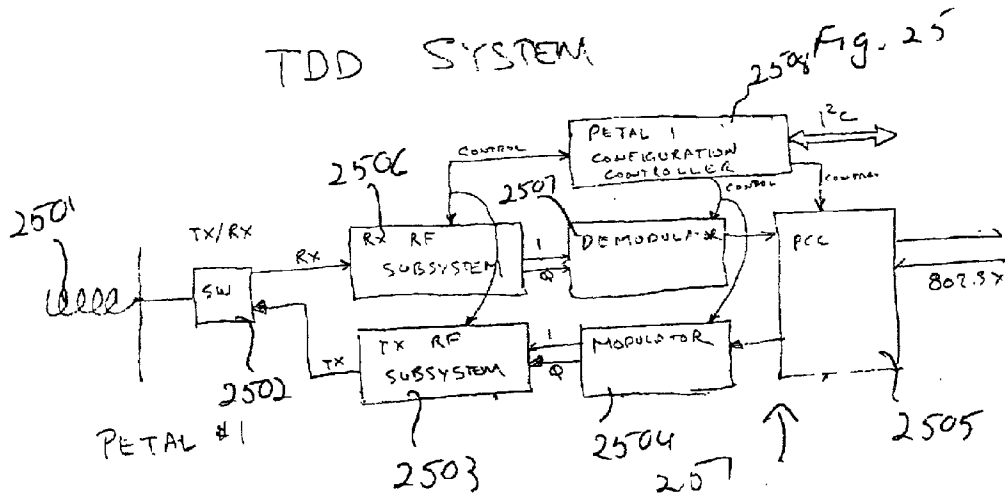 TDD SYSTEM
Fig. 25
2508
I²C
PETAL 1
CONFIGURATION
CONTROLLER
CONTROL
2506
2507
CONTROL
CONTROL
2501
TX/RX
RX
RX RF
SUBSYSTEM
I
Q
DEMODULATOR
PCC
802.3X
SW
TX
TX RF
SUBSYSTEM
I
Q
MODULATOR
2502
PETAL #1
2503
2504
2505